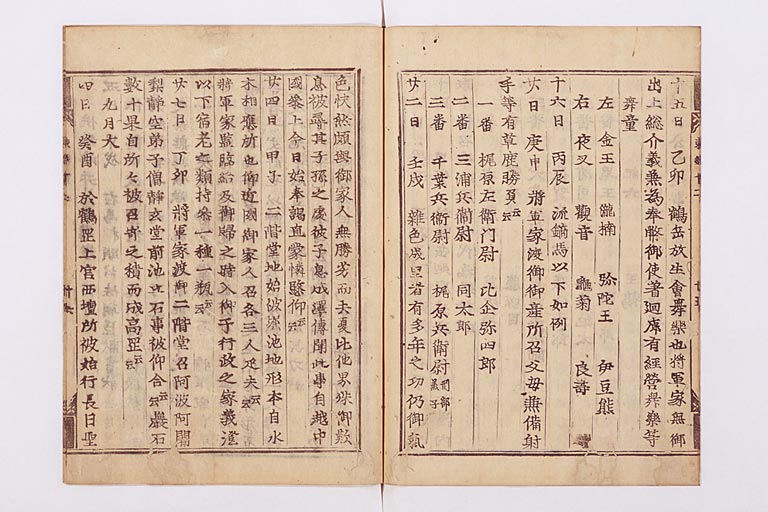 十五日 乙卯 鶴岳放生會舞樂也将軍家無御
出上総介義兼為奉幣御使着廻席有経營舞樂等
舞童
左 金王 瀧楠 弥陀王 伊豆熊
右 夜叉 觀音 亀菊 良壽
十六日 丙辰 流鏑馬以下如例
廿日 庚申 将軍家渡御御産所召父毎無備射
手等有草鹿勝負云云
一番 梶原左衛門尉 比企弥四郎
二番 三浦兵衛尉 同太郎
三番 千葉兵衛尉 梶原兵衛尉
廿二日 壬戌 雜色成里者有多年之功仍御氣
色快然頗與御家人無勝劣而去夏比他界殊御歎
息被尋其子孫之處彼子息成澤傳聞此事自越中
國參上今日始奉謁直蒙憐愍仰云云
廿四日 甲子 二階堂地始被堀池地形本自水
木相應所也仰近國御家人召各三人疋夫云云
将軍家監臨給及御歸之時入御于行政之家義澄
以下宿老之類持參一種一瓶云云
廿七日 丁卯 将軍家渡御二階堂召阿波阿闍
梨静空弟子僧静玄堂前池立石事被仰合云云巖石
數十果自所々被召寄之積而成高罡云云
四日 癸酉 於鶴罡上宮西壇所被始行長日聖